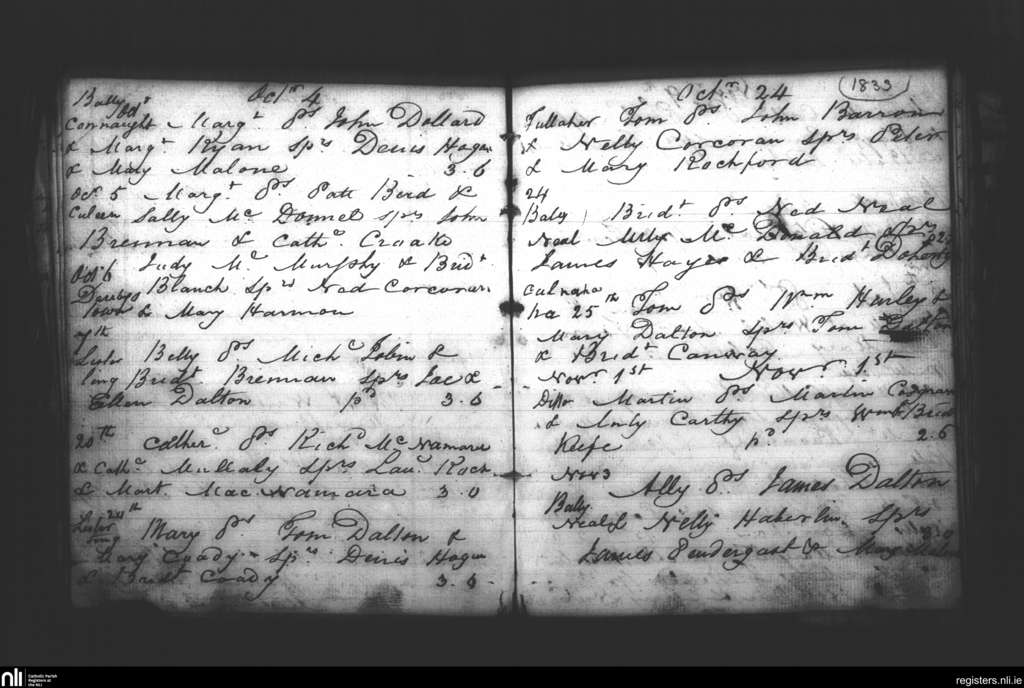 Octr 4
Bally
pd
Connaught Margt Ps John Dollard
& Margt Ryan sprs Denis Hogan
& Mary Malone 3.6
Oct 5 Margt Ps Patt Bird &
Culeen Sally Mc Donnel sprs John
Brennan & Cathe Croake
Oct 6 Judy Mc Murphy & Bridt
Derby Blanch sprs Ned Corcoran
town & Mary Harmon
7th
Lister Betty Ps Michl Tobin &
ling Bridt Brennan sprs Jac &
Ellen Dalton pd 3.6
20th Cather Ps Richd Mc Namara
& Cathe Mullaly sprs Lau Roch
& Mart Mac Namara 3.0
20th
Lister Mary Ps Tom Dalton &
ling Mary Coady sprs Denis Hogan
& Bridt Coady 3.0
Octr 24 1833
Tullaher Tom Ps John Barron
& Nelly Corcoran sprs Peter
& Mary Rochford
24
Baly Bridt Ps Ned Neal
Neal Mc Donald sprs
James Hayes & Bridt Dohony
Culnaha
ha 25th Tom Ps Wm Hurley &
Mary Dalton sprs Tom
& Bridt Canway
Novr 1st Novr 1st
Ditto Martin Ps Martin
& Carthy sprs Bird
Keefe pd 2.6
Nov 3
Bally Ally Ps James Dalton
Neal & Nelly Haberlin sprs
James Pendergast & Mary
nli
Catholic Parish
Registers at
the NLI
registers.nli.ie